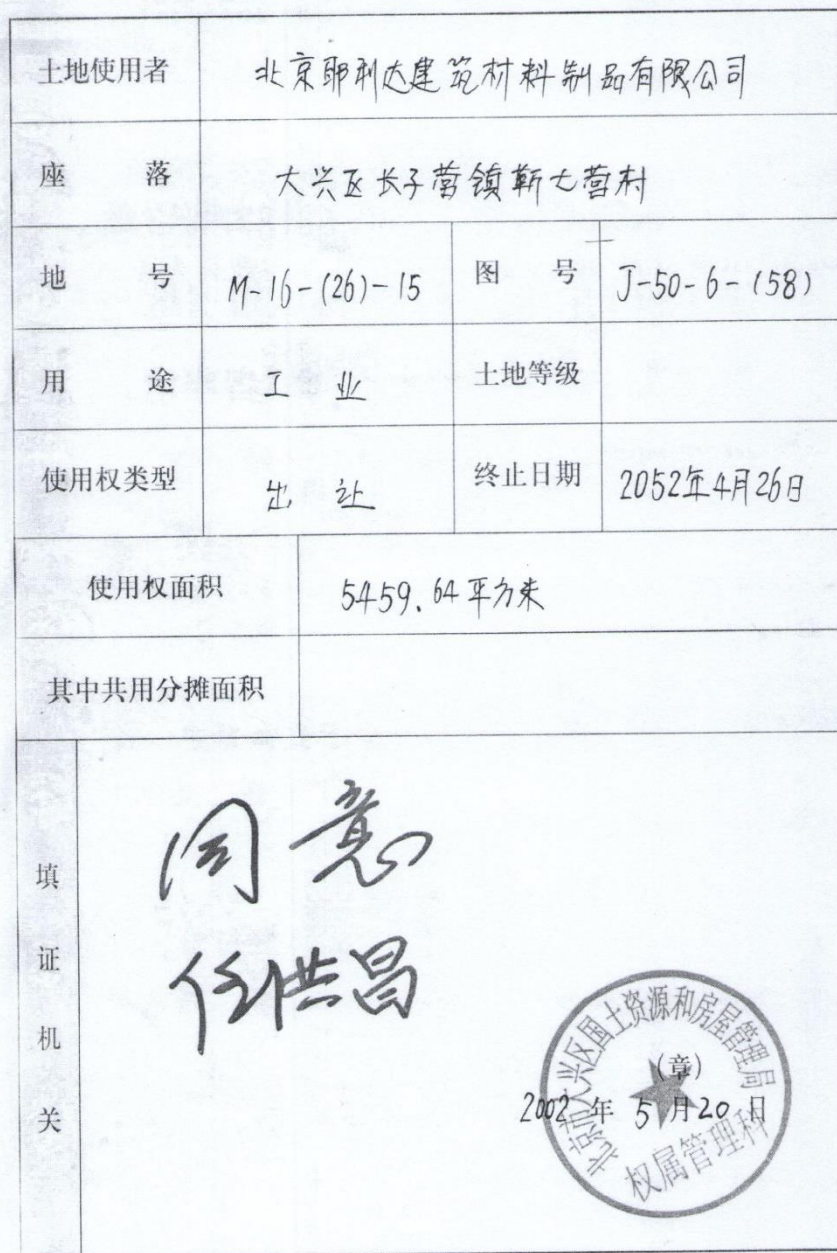 土地使用者 北京耶利达建筑材料制品有限公司
座落 大兴区长子营镇靳七营村
地号 M-16-(26)-15 图号 J-50-6-(58)
用途 工业 土地等级
使用权类型 出让 终止日期 2052年4月26日
使用权面积 5459.64平方米
其中共用分摊面积
填证机关
同意
任洪昌
北京市大兴区国土资源和房屋管理局
(章)
2002年5月20日
权属管理科